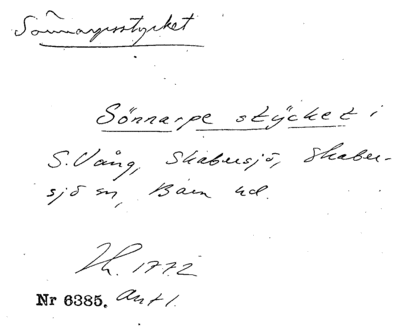 Sönnarpsstycket
Sönnarpe stÿcket i
S. Vång, Skabersjö, Skaber-
sjö sn, Bara hd.
Lh. 1772
Nr 6385. Ant 1.